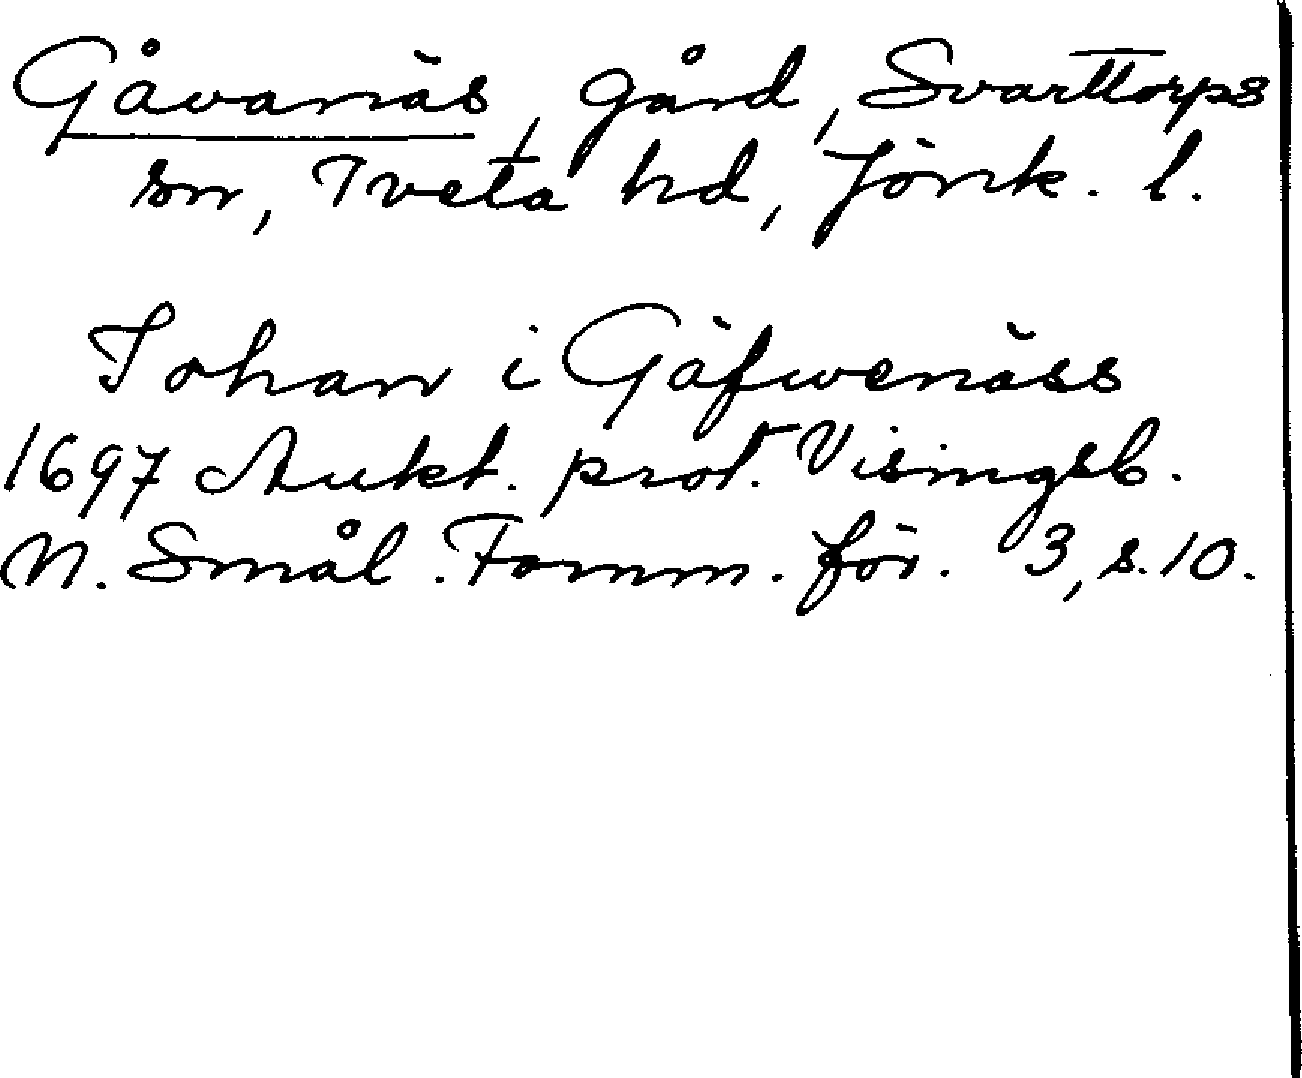 Gåvanäs, gård, Svarttorps
sn, Tveta hd, Jönk. l.
Johan i Gäfwenäss
1697 Aukt. prot. Visingsb.
N. Smål. Fornm. för. 3, s. 10.